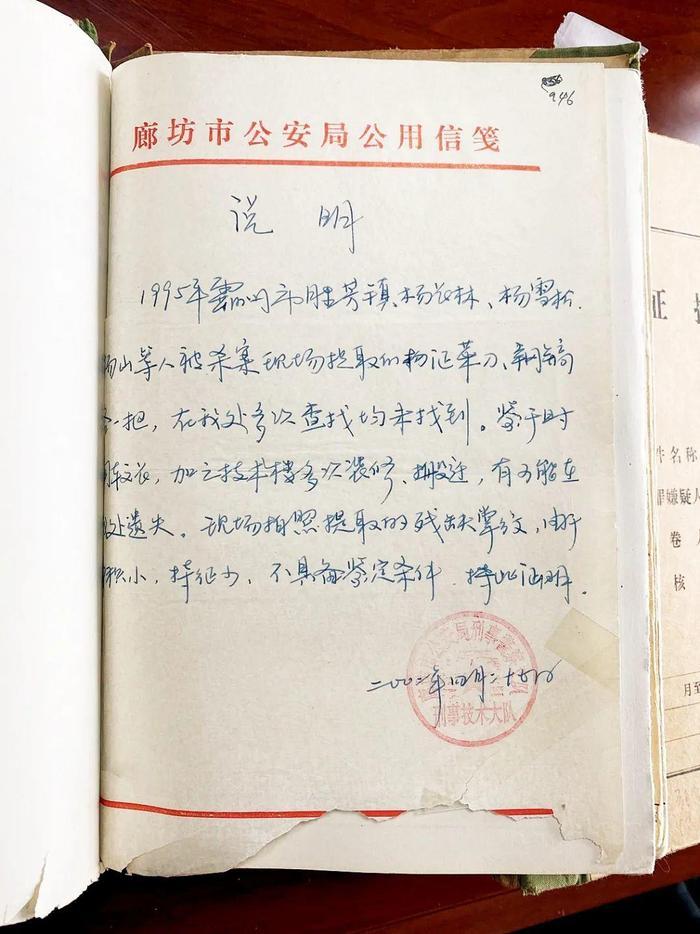 946
廊坊市公安局公用信笺
说 明
1995年霸州市胜芳镇杨 林、杨雪松、
杨山等人被杀案现场提取的物证菜刀、钢镐
各一把,在我处多次查找均未找到。鉴于时
间较长,加之技术楼多次装修、搬迁,有可能在
此处遗失。现场拍照提取的残缺掌纹,由于
面积小,特征少,不具备鉴定条件。特此证明。
二00二年四月二十
公安局刑事警察 队
刑事技术大队
证据
件名称
罪嫌疑人
卷
核
月至